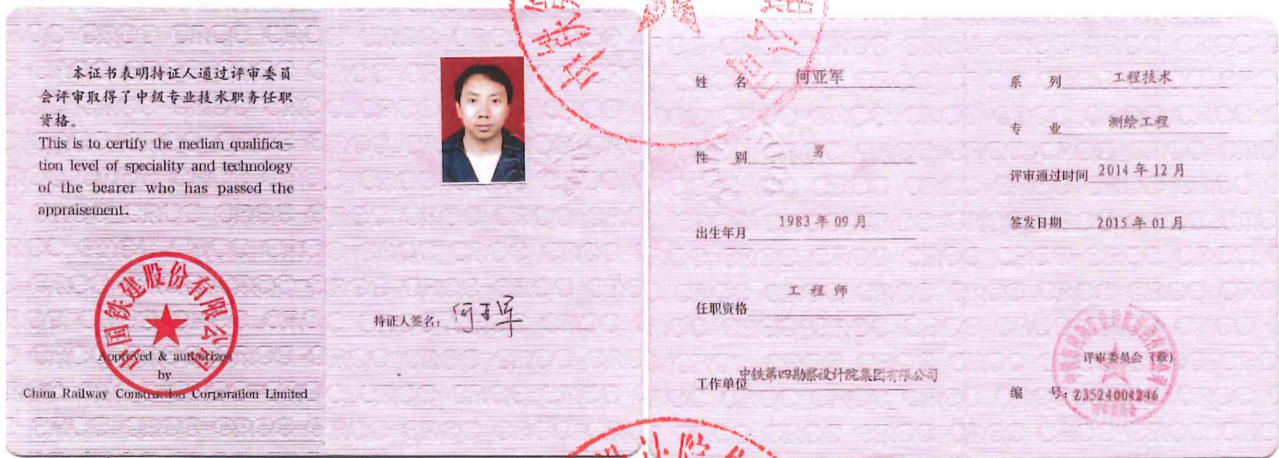 本证书表明持证人通过评审委员
会评审取得了中级专业技术职务任职
资格。
This is to certify the median qualifica-
tion level of speciality and technology
of the bearer who has passed the
appraisement.
中国铁建股份有限公司
Approved & authorized
by
China Railway Construction Corporation Limited
持证人签名：何亚军
姓 名 何亚军
性 别 男
出生年月 1983 年 09 月
任职资格 工 程 师
工作单位 中铁第四勘察设计院集团有限公司
系 列 工程技术
专 业 测绘工程
评审通过时间 2014 年 12 月
签发日期 2015 年 01 月
评审委员会（章）
编 号：23524004246
评审委员会